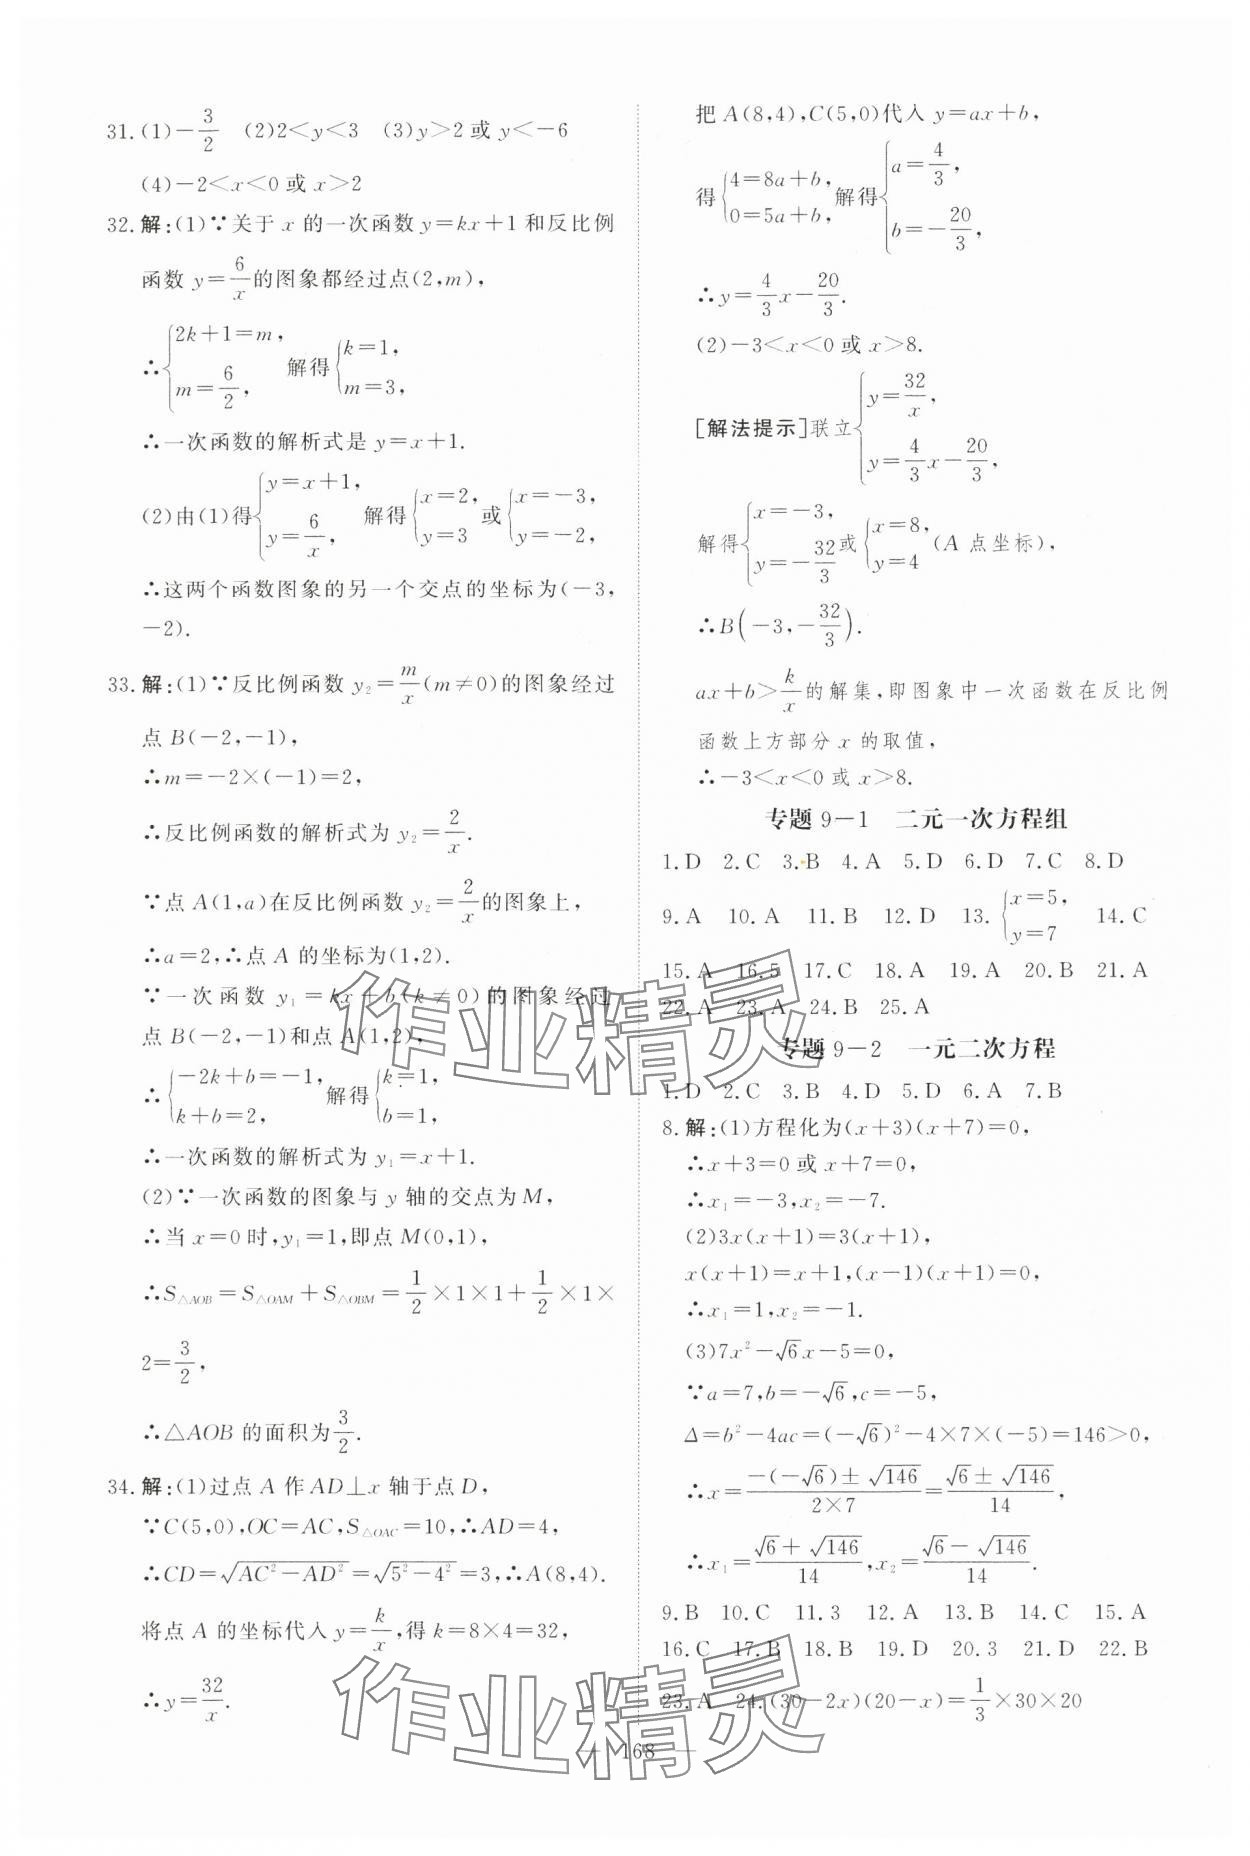 31.(1)－3/2　(2)2＜y＜3　(3)y＞2或y＜－6
(4)－2＜x＜0或x＞2
32.解:(1)∵关于x的一次函数y＝kx＋1和反比例
函数y＝6/x的图象都经过点(2,m),
∴{2k＋1＝m, m＝6/2, 解得{k＝1, m＝3,
∴一次函数的解析式是y＝x＋1.
(2)由(1)得{y＝x＋1, y＝6/x, 解得{x＝2, y＝3 或{x＝－3, y＝－2,
∴这两个函数图象的另一个交点的坐标为(－3,
－2).
33.解:(1)∵反比例函数y₂＝m/x(m≠0)的图象经过
点B(－2,－1),
∴m＝－2×(－1)＝2,
∴反比例函数的解析式为y₂＝2/x.
∵点A(1,a)在反比例函数y₂＝2/x的图象上,
∴a＝2,∴点A的坐标为(1,2).
∵一次函数y₁＝kx＋b(k≠0)的图象经过
点B(－2,－1)和点A(1,2),
∴{－2k＋b＝－1, k＋b＝2, 解得{k＝1, b＝1,
∴一次函数的解析式为y₁＝x＋1.
(2)∵一次函数的图象与y轴的交点为M,
∴当x＝0时,y₁＝1,即点M(0,1),
∴S△AOB＝S△OAM＋S△OBM＝1/2×1×1＋1/2×1×
2＝3/2,
∴△AOB的面积为3/2.
34.解:(1)过点A作AD⊥x轴于点D,
∵C(5,0),OC＝AC,S△OAC＝10,∴AD＝4,
∴CD＝√(AC²－AD²)＝√(5²－4²)＝3,∴A(8,4).
将点A的坐标代入y＝k/x,得k＝8×4＝32,
∴y＝32/x.
把A(8,4),C(5,0)代入y＝ax＋b,
得{4＝8a＋b, 0＝5a＋b, 解得{a＝4/3, b＝－20/3,
∴y＝4/3x－20/3.
(2)－3＜x＜0或x＞8.
[解法提示]联立{y＝32/x, y＝4/3x－20/3,
解得{x＝－3, y＝－32/3 或{x＝8, y＝4 (A点坐标),
∴B(－3,－32/3).
ax＋b＞k/x的解集,即图象中一次函数在反比例
函数上方部分x的取值,
∴－3＜x＜0或x＞8.
专题9－1　二元一次方程组
1.D　2.C　3.B　4.A　5.D　6.D　7.C　8.D
9.A　10.A　11.B　12.D　13.{x＝5, y＝7　14.C
15.A　16.5　17.C　18.A　19.A　20.B　21.A
22.A　23.A　24.B　25.A
专题9－2　一元二次方程
1.D　2.C　3.B　4.D　5.D　6.A　7.B
8.解:(1)方程化为(x＋3)(x＋7)＝0,
∴x＋3＝0或x＋7＝0,
∴x₁＝－3,x₂＝－7.
(2)3x(x＋1)＝3(x＋1),
x(x＋1)＝x＋1,(x－1)(x＋1)＝0,
∴x₁＝1,x₂＝－1.
(3)7x²－√6x－5＝0,
∵a＝7,b＝－√6,c＝－5,
Δ＝b²－4ac＝(－√6)²－4×7×(－5)＝146＞0,
∴x＝(－(－√6)±√146)/(2×7)＝(√6±√146)/14,
∴x₁＝(√6＋√146)/14,x₂＝(√6－√146)/14.
9.B　10.C　11.3　12.A　13.B　14.C　15.A
16.C　17.B　18.B　19.D　20.3　21.D　22.B
23.A　24.(30－2x)(20－x)＝1/3×30×20
— 168 —
作业精灵
作业精灵